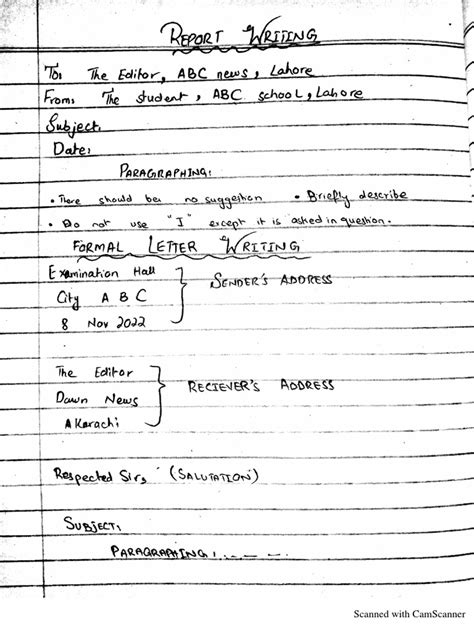 REPORT WRITING
To: The Editor, ABC news, Lahore
From: The student, ABC school, Lahore
Subject:
Date:
PARAGRAPHING:
• There should be no suggestion • Briefly describe
• Do not use "I" except it is asked in question.
FORMAL LETTER WRITING
Examination Hall
City A B C
SENDER'S ADDRESS
8 Nov 2022
The Editor
Dawn News
RECIEVER'S ADDRESS
Karachi
Respected Sir, (SALUTATION)
SUBJECT:
PARAGRAPHING:.......
Scanned with CamScanner